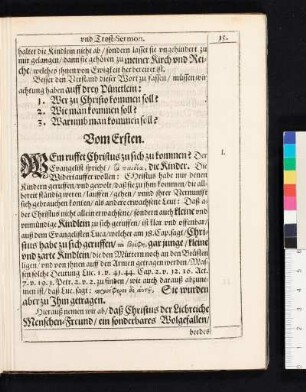 und Trost-Sermon.
15.
haltet die Kindlein nicht ab / sondern lasset sie ungehindert zu
mir gelangen / dann sie gehören zu meiner Kirch und Rei-
che / welches ihnen von Ewigkeit her bereitet ist.
Besser den Verstand dieser Wort zu fassen / müssen wir
achtung haben auff drey Pünctlein:
1. Wer zu Christo kommen soll?
2. Wie man kommen soll?
3. Warumb man kommen soll?
Vom Ersten.
WEm ruffet Christus zu sich zu kommen? Der
I.
Evangelist spricht / die Kinder. Die
Widertauffer wollen: Christus habe nur denen
Kindern geruffen /
sich gebrauchen können / als andere erwachsene Leut: Daß a-
ber Christus nicht allein erwachsene / sondern auch kleine und
unmündige Kindlein zu sich geruffen / ist klar und offenbar /
auß dem Evangelisten Luca / welcher am 18. Cap. sagt / Chri-
stus habe zu sich geruffen / gar junge / kleine
und zarte Kindlein / die den Müttern noch an den Brüsten
ligen / und von ihnen auff den Armen getragen werden. Wa-
sen solche Deutung Luc. 1. v. 41. 44. Cap. 2. v. 12. 16. Act.
7. v. 19. 1. Petr. 2. v. 2. zu finden / wie auch darauß abzune-
men ist / daß Luc. sagt: Sie wurden
aber zu Ihm getragen.
Hierauß nemen wir ab / daß Christus der Liebreiche
Menschen-Freund / ein sonderbares Wolgefallen /
beedes